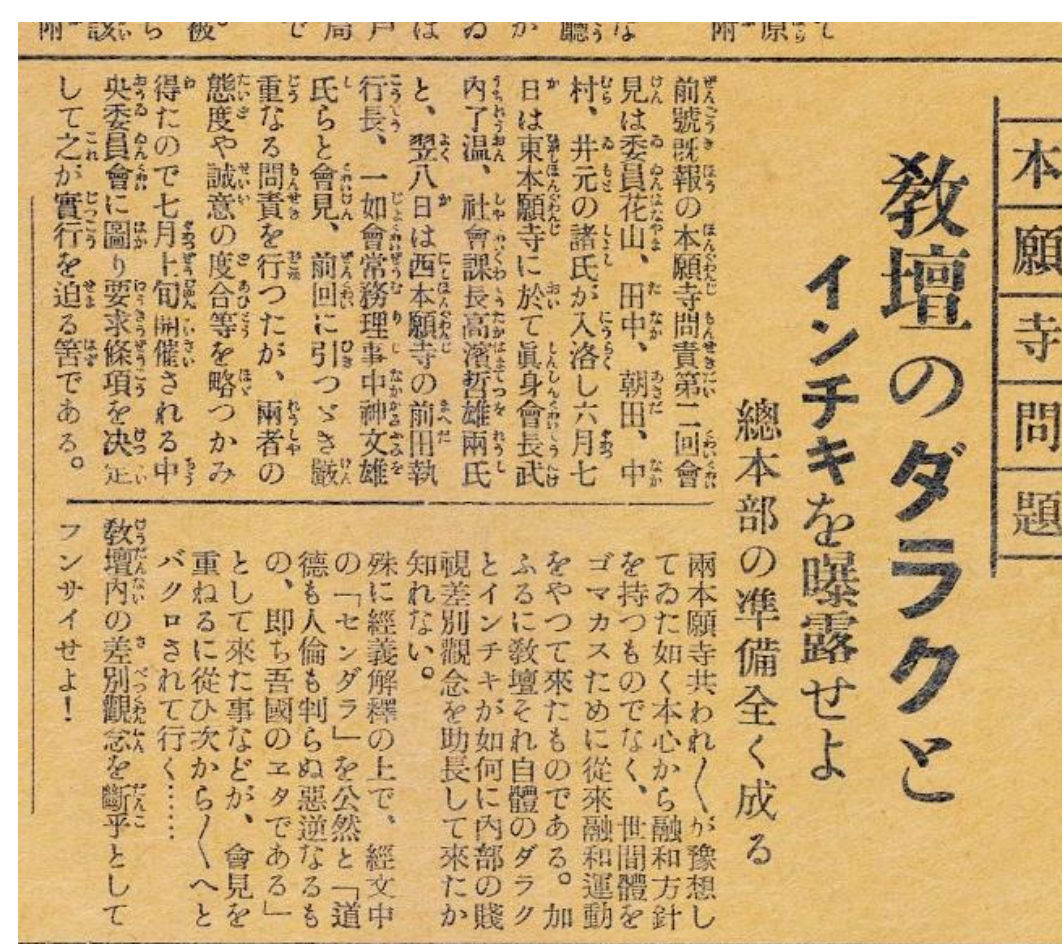 本願寺問題
教壇のダラクと
インチキを曝露せよ
總本部の準備全く成る
前號既報の本願寺問責第二回會
見は委員花山、田中、朝田、中
村、井元の諸氏が入洛し六月七
日は東本願寺に於て眞身會長武
内了温、社會課長高濱哲雄兩氏
と、翌八日は西本願寺の前田執
行長、一如會常務理事中神文雄
氏らと會見、前回に引つゞき嚴
重なる問責を行つたが、兩者の
態度や誠意の度合等を略つかみ
得たので七月上旬開催される中
央委員會に圖り要求條項を決定
して之が實行を迫る筈である。
兩本願寺共われ〱が豫想し
てゐた如く本心から融和方針
を持つものでなく、世間體を
ゴマカスために從來融和運動
をやつて來たものである。加
ふるに教壇それ自體のダラク
とインチキが如何に内部の賤
視差別觀念を助長して來たか
知れない。
殊に經義解釋の上で、經文中
の「センダラ」を公然と「道
德も人倫も判らぬ惡逆なるも
の、即ち吾國のエタである」
として來た事などが、會見を
重ねるに從ひ次から〱へと
バクロされて行く……
教壇内の差別觀念を斷乎として
フンサイせよ！